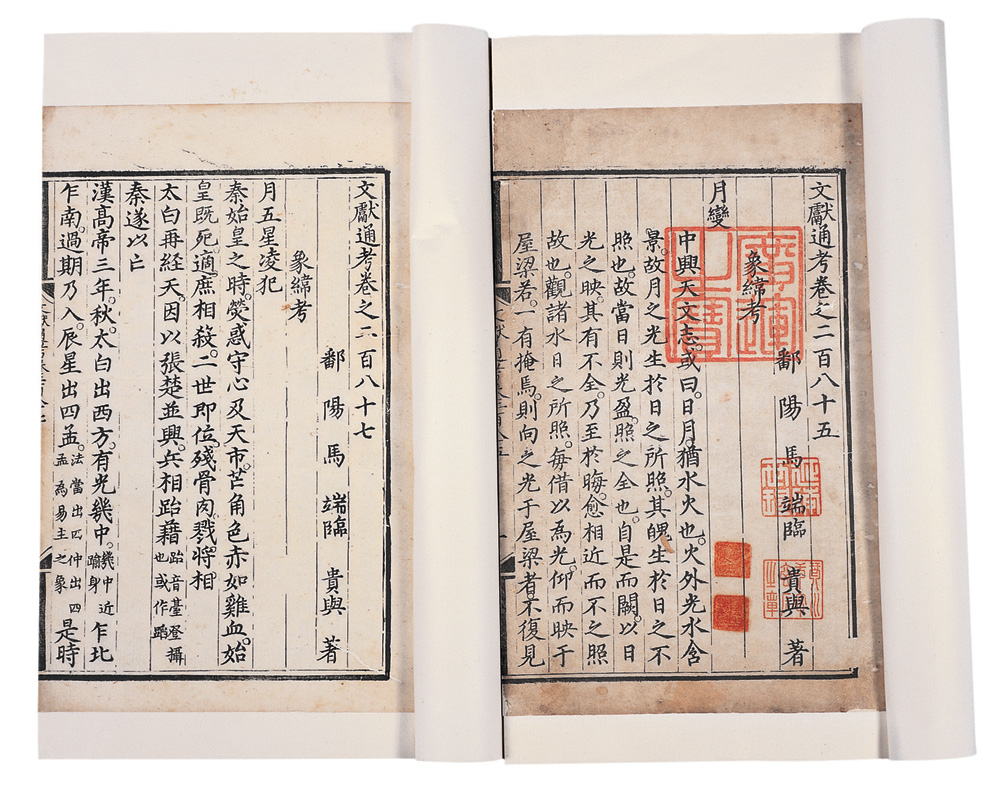 文獻通考卷之二百八十五
鄱陽馬端臨貴與著
象緯考
月變
中興天文志。或曰。日月。猶水火也。火外光水含
景。故月之光生於日之所照。其魄生於日之不
照也。故當日則光盈。照之全也。自是而闕。以日
光之映。其有不全。乃至於晦。愈相近而不之照
故也。觀諸水日之所照。每借以為光。仰而映于
屋梁若。一有掩焉。則向之光于屋梁者不復見
廣運之寶
文獻通考卷之二百八十七
鄱陽馬端臨貴與著
象緯考
月五星凌犯
秦始皇之時。熒惑守心及天市。芒角色赤如雞血。始
皇既死。適庶相殺。二世即位。殘骨肉。戮將相
太白再經天。因以張楚並興。兵相跆藉跆音臺登攝也或作蹈
秦遂以亡
漢高帝三年。秋。太白出西方。有光幾中。幾中近踰身乍北
乍南。過期乃入。辰星出四孟。法當出四仲出四孟為易主之象是時